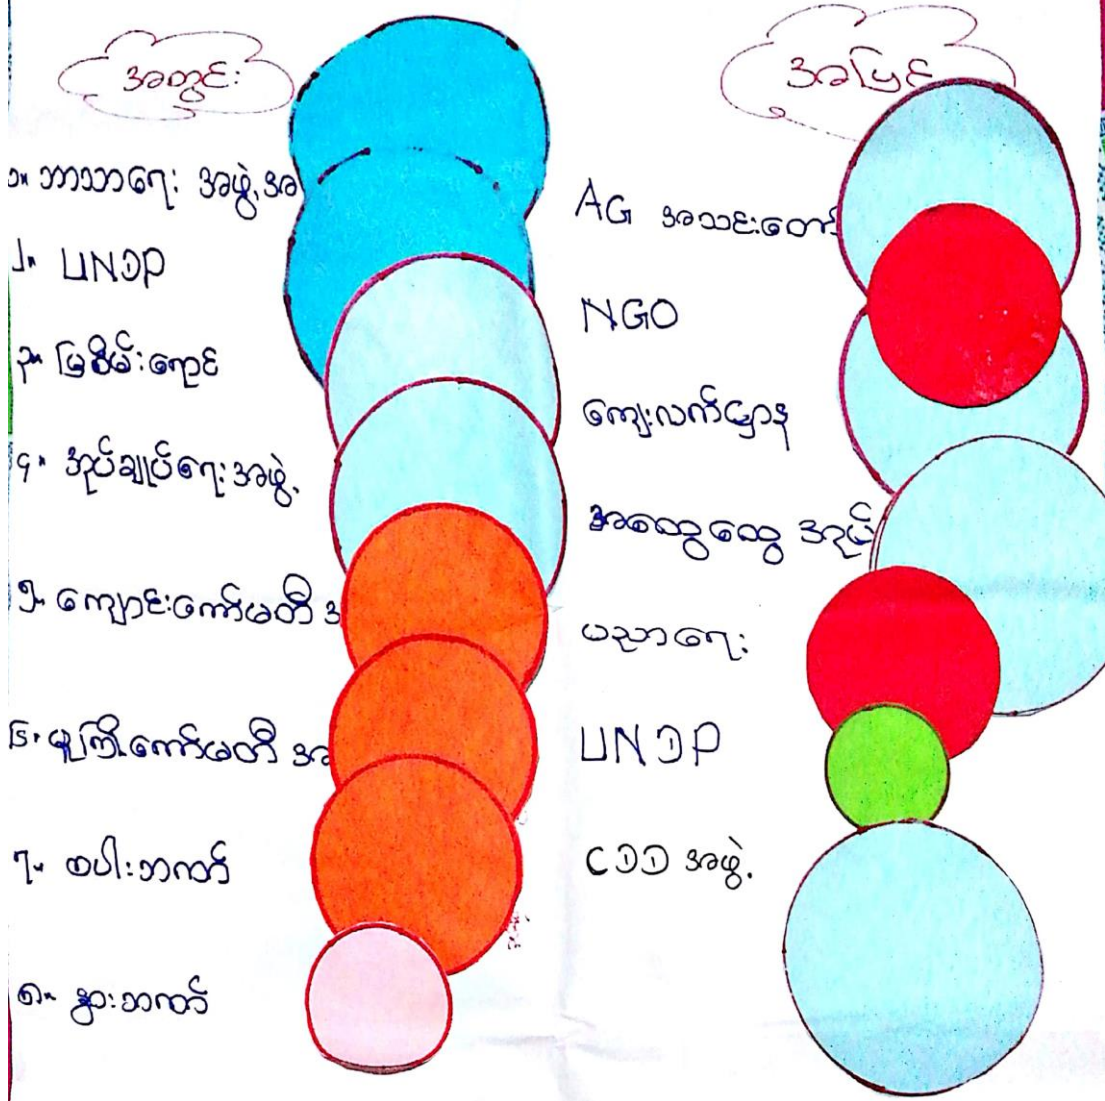 အတွင်း
၁။ ဘာသာရေး အဖွဲ့အ
၂။ UNDP
၃။ မြစိမ်းရောင်
၄။ အုပ်ချုပ်ရေးအဖွဲ့
၅။ ကျောင်းကော်မတီ အ
၆။ မူကြိုကော်မတီ အ
၇။ စပါးဘဏ်
၈။ နွားဘဏ်
အပြင်
AG အသင်းတော်
NGO
ကျေးလက်ဌာန
အထွေထွေ အုပ်
ပညာရေး
UNDP
CDD အဖွဲ့